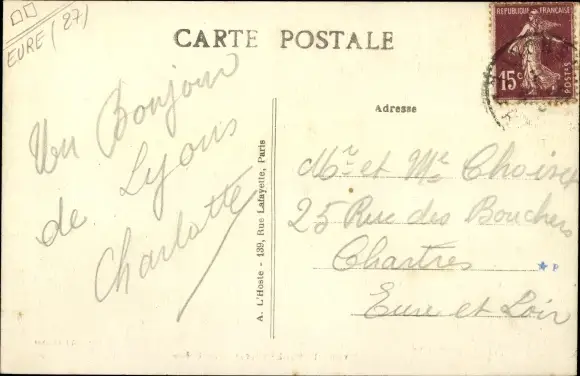 EURE (27)
CARTE POSTALE
REPUBLIQUE FRANÇAISE
15c
POSTES
Un Bonjour
de Lyons
Charlotte
A. L'Hoste - 139, Rue Lafayette, Paris
Adresse
Mr et Me Choiset
25 Rue des Bouchers
Chartres
P
Eure et Loir